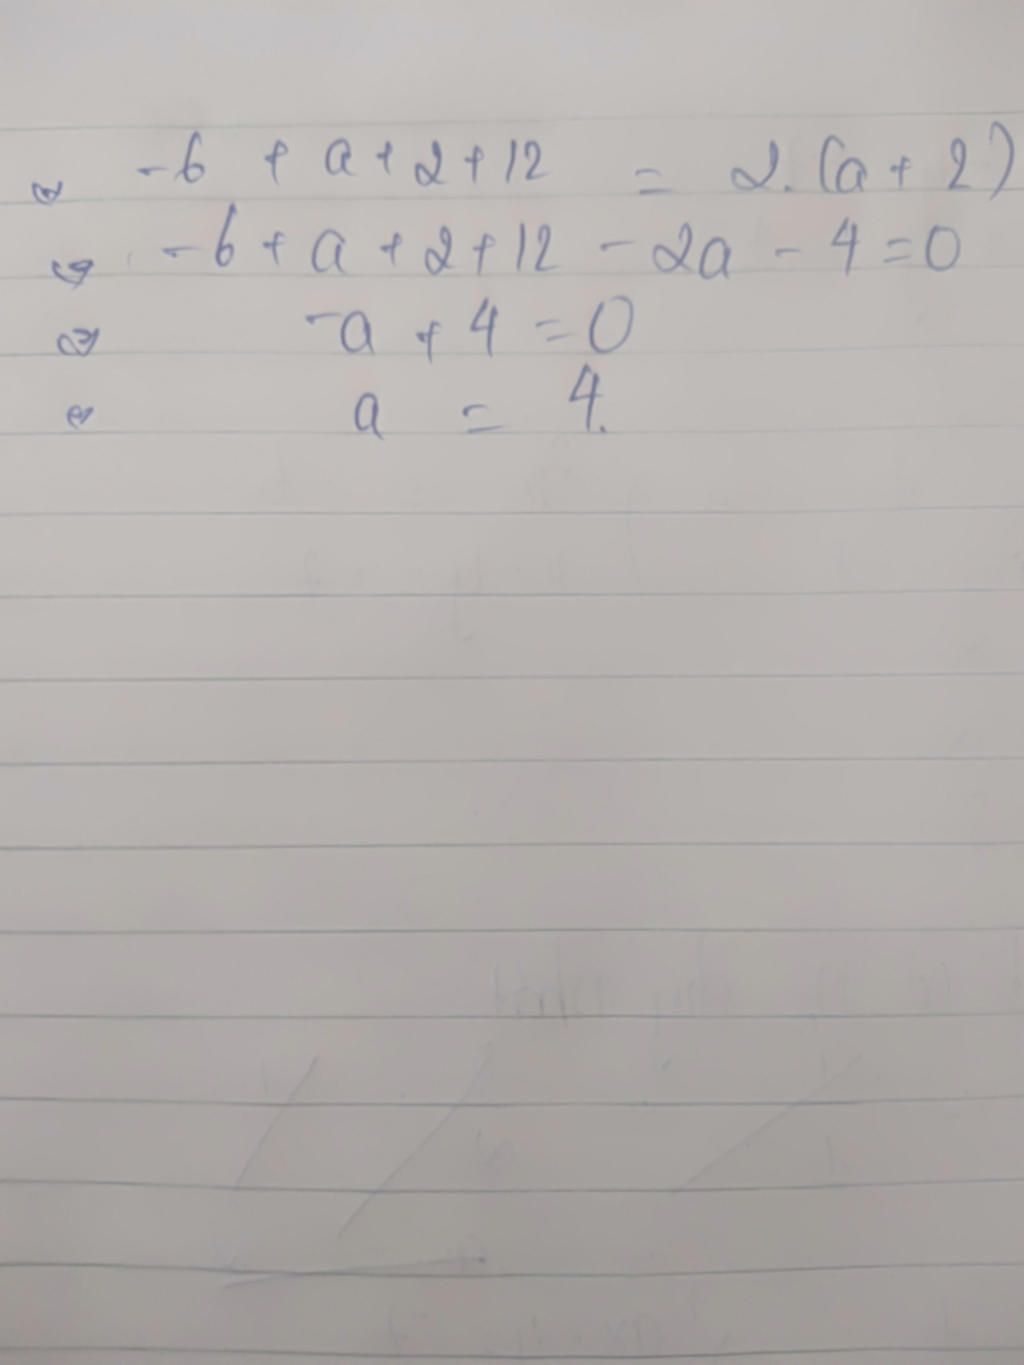 ⇔ -6 + a + 2 + 12 = 2.(a + 2)
⇔ -6 + a + 2 + 12 - 2a - 4 = 0
⇔ -a + 4 = 0
⇔ a = 4.